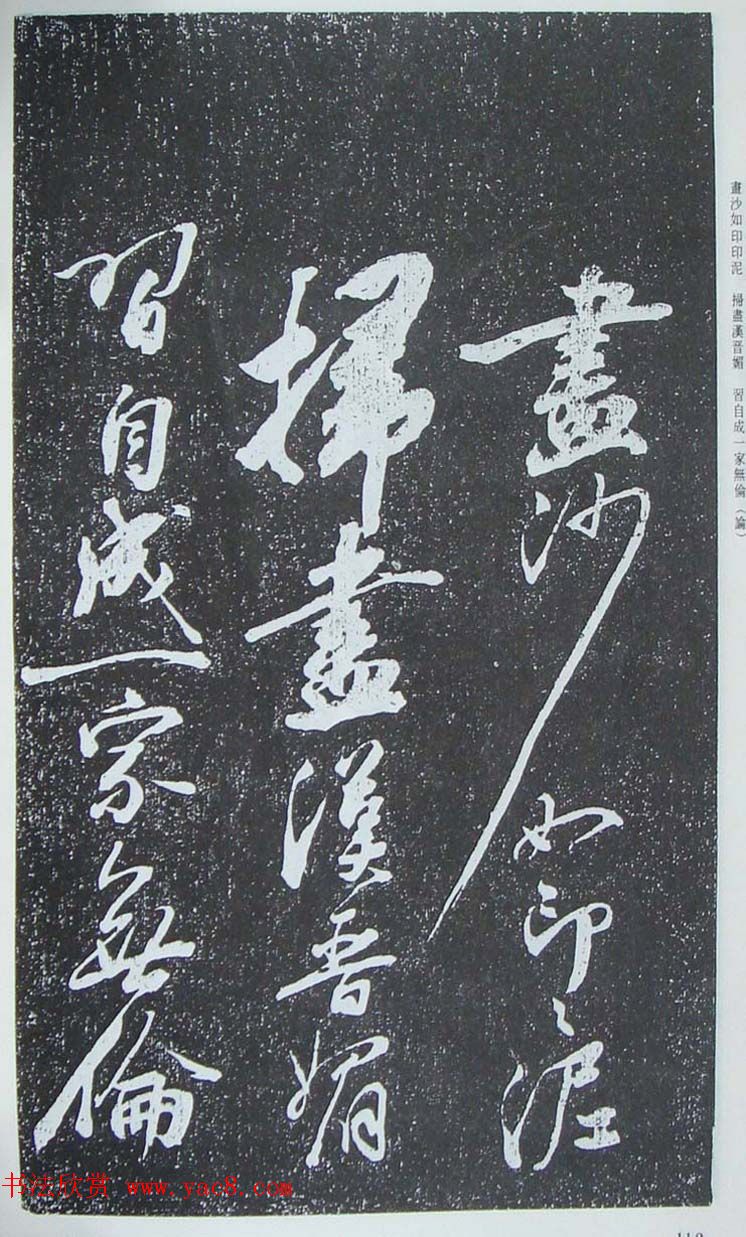 畫沙如印〻泥
掃盡漢晋媚
習自成一家無倫
畫沙如印印泥 掃盡漢晋媚 習自成一家無倫（論）
书法欣赏 www.yac8.com